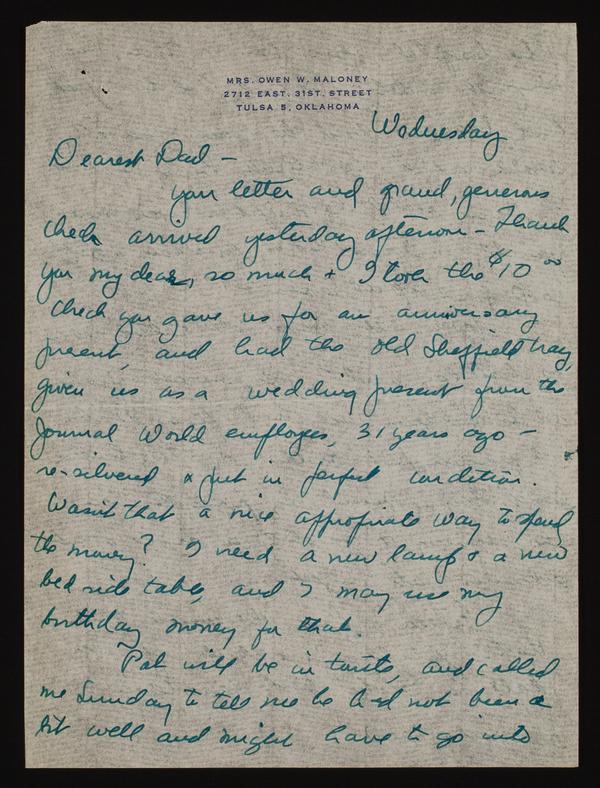 MRS. OWEN W. MALONEY
2712 EAST. 31ST. STREET
TULSA 5, OKLAHOMA
Wednesday
Dearest Dad -
your letter and grand, generous
check arrived yesterday afternoon - Thank
you my dear, so much + I took the $10 00
check you gave us for an anniversary
present, and had the old Sheffield tray,
given us as a wedding present from the
Journal World employees, 31 years ago -
re-silvered & put in perfect condition.
Wasn't that a nice appropriate way to spend
the money? I need a new lamp & a new
bed side table, and I may use my
birthday money for that.
Pat will be in and called
me Sunday to tell me he had not been a
bit well and might have to go into